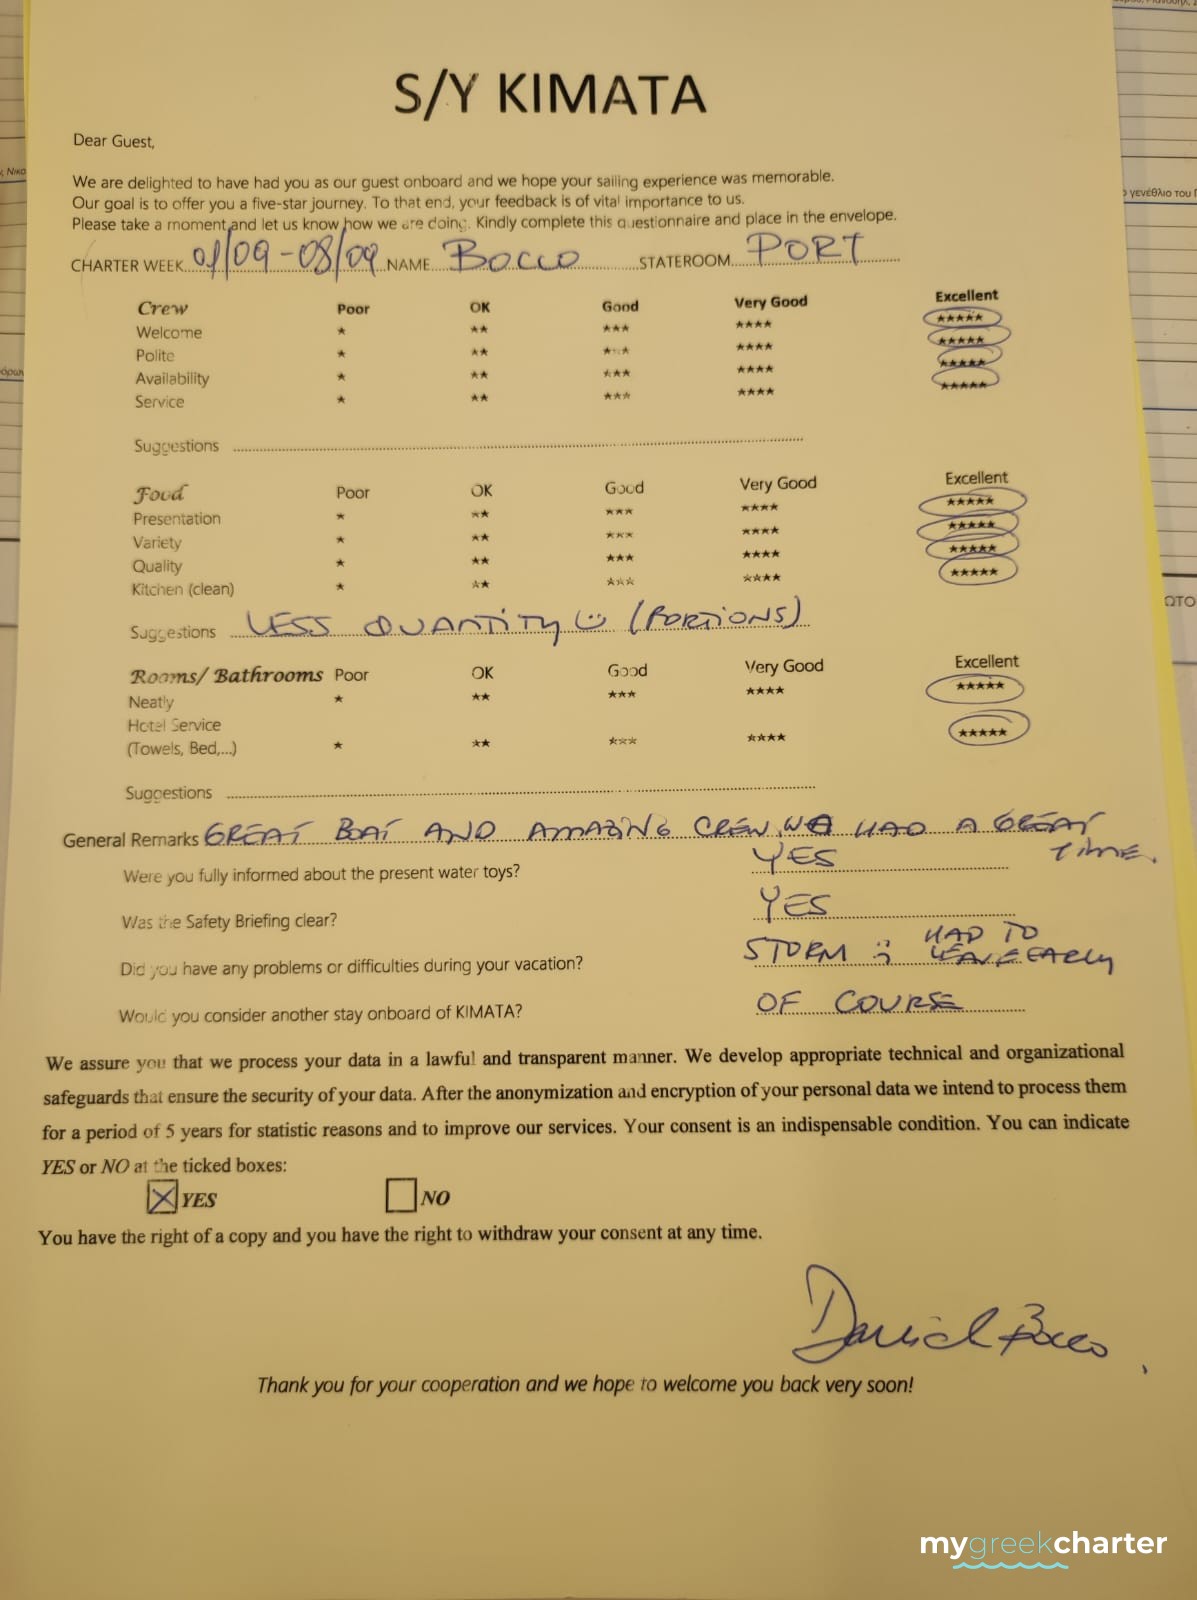 S/Y KIMATA
Dear Guest,
We are delighted to have had you as our guest onboard and we hope your sailing experience was memorable.
Our goal is to offer you a five-star journey. To that end, your feedback is of vital importance to us.
Please take a moment and let us know how we are doing. Kindly complete this questionnaire and place in the envelope.
CHARTER WEEK 01/09-08/09 NAME BOCCO STATEROOM PORT
Crew Poor OK Good Very Good Excellent
Welcome * ** *** **** *****
Polite * ** *** **** *****
Availability * ** *** **** *****
Service * ** *** **** *****
Suggestions
Food Poor OK Good Very Good Excellent
Presentation * ** *** **** *****
Variety * ** *** **** *****
Quality * ** *** **** *****
Kitchen (clean) * ** *** **** *****
Suggestions LESS QUANTITY (PORTIONS)
Rooms/ Bathrooms Poor OK Good Very Good Excellent
Neatly * ** *** **** *****
Hotel Service
(Towels, Bed,...) * ** *** **** *****
Suggestions
General Remarks GREAT BOAT AND AMAZING CREW. WE HAD A GREAT
TIME.
Were you fully informed about the present water toys? YES
Was the Safety Briefing clear? YES
Did you have any problems or difficulties during your vacation? STORM :( HAD TO
LEAVE EARLY
Would you consider another stay onboard of KIMATA? OF COURSE
We assure you that we process your data in a lawful and transparent manner. We develop appropriate technical and organizational
safeguards that ensure the security of your data. After the anonymization and encryption of your personal data we intend to process them
for a period of 5 years for statistic reasons and to improve our services. Your consent is an indispensable condition. You can indicate
YES or NO at the ticked boxes:
YES NO
You have the right of a copy and you have the right to withdraw your consent at any time.
Daniel Bocco
Thank you for your cooperation and we hope to welcome you back very soon!
mygreekcharter